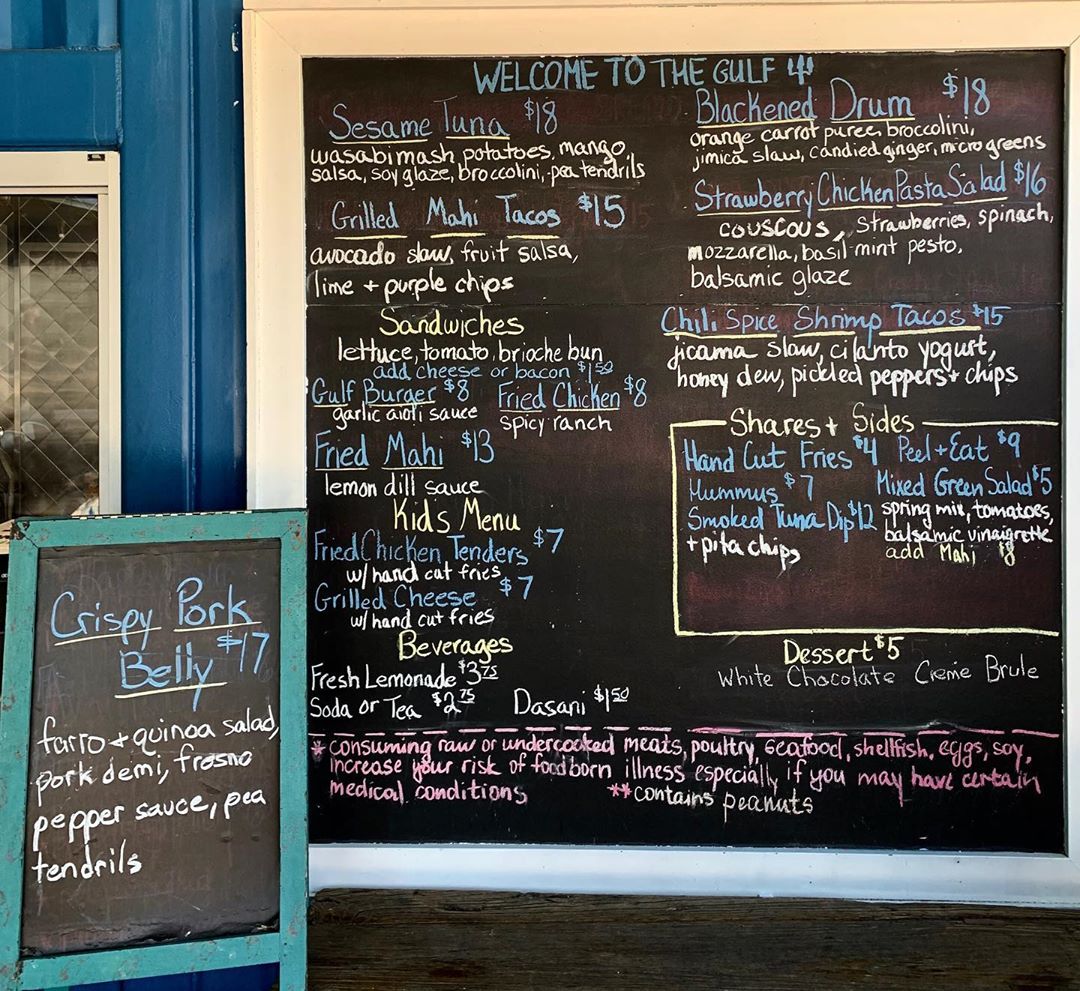 WELCOME TO THE GULF 4!
Sesame Tuna $18
wasabi mash potatoes, mango
salsa, soy glaze, broccolini, pea tendrils
Grilled Mahi Tacos $15
avocado slaw, fruit salsa,
lime + purple chips
Sandwiches
lettuce, tomato, brioche bun
add cheese or bacon $1.50
Gulf Burger $8 Fried Chicken $8
garlic aioli sauce spicy ranch
Fried Mahi $13
lemon dill sauce
Kids Menu
Fried Chicken Tenders $7
w/ hand cut fries
Grilled Cheese $7
w/ hand cut fries
Beverages
Fresh Lemonade $3.75
Soda or Tea $2.75 Dasani $1.50
Blackened Drum $18
orange carrot puree, broccolini,
jimica slaw, candied ginger, micro greens
Strawberry Chicken Pasta Salad $16
couscous, strawberries, spinach,
mozzarella, basil mint pesto,
balsamic glaze
Chili Spice Shrimp Tacos $15
jicama slaw, cilanto yogurt,
honey dew, pickled peppers + chips
Shares + Sides
Hand Cut Fries $4 Peel + Eat $9
Hummus $7 Mixed Green Salad $5
Smoked Tuna Dip $12 spring mix, tomatoes,
+ pita chips balsamic vinaigrette
add Mahi $8
Dessert $5
White Chocolate Creme Brule
* consuming raw or undercooked meats, poultry, seafood, shellfish, eggs, soy,
increase your risk of foodborn illness especially if you may have certain
medical conditions **contains peanuts
Crispy Pork
Belly $17
farro + quinoa salad,
pork demi, fresno
pepper sauce, pea
tendrils